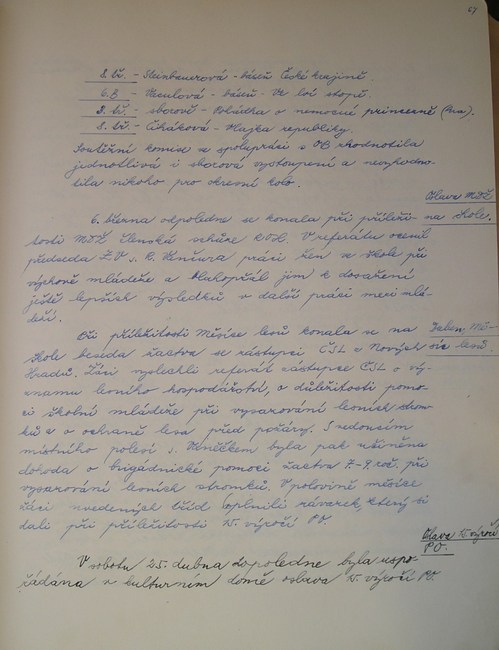 67
8. tř. - Steinbauerová - báseň České krajině.
6. B - Maculová - báseň - Ve tvé stopě.
3. tř. - sborově - Pohádka o nemocné princezně (Hra).
8. tř. - Čikáková - Vlajka republiky.
Soutěžní komise ve spolupráci s OB zhodnotila
jednotlivá i sborová vystoupení a nevyhodno-
tila nikoho pro okresní kolo.
Oslava MDŽ
na škole.
6. března odpoledne se konala při příleži-
tosti MDŽ členská schůze ROH. V referátu ocenil
předseda ZV s. R. Venčura práci žen ve škole při
výchově mládeže a blahopřál jim k dosažení
ještě lepších výsledků v další práci mezi mlá-
deží.
Duben, Mě-
síc lesů.
Při příležitosti Měsíce lesů konala se na
škole beseda žactva se zástupci ČSL z Nových
Hradů. Žáci vyslechli referát zástupce ČSL o vý-
znamu lesního hospodářství, o důležitosti pomo-
ci školní mládeže při vysazování lesních strom-
ků a o ochraně lesa před požáry. S vedoucím
místního polesí s. Venclíkem byla pak učiněna
dohoda o brigádnické pomoci žactva 7.-9. roč. při
vysazování lesních stromků. V polovině měsíce
žáci uvedených tříd splnili závazek, který si
dali při příležitosti 15. výročí PO.
Oslava 15. výročí
PO.
V sobotu 25. dubna dopoledne byla uspo-
řádána v kulturním domě oslava 15. výročí PO.